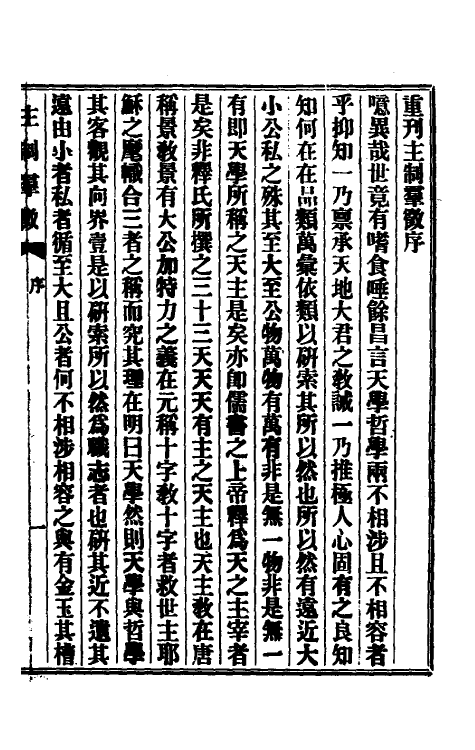 重刊主制羣徵序
噫異哉世竟有嗜食唾餘昌言天學哲學兩不相涉且不相容者
乎抑知一乃禀承天地大君之敎誠一乃推極人心固有之良知
知何在在品類萬彙依類以硏索其所以然也所以然有遠近大
小公私之殊其至大至公物萬物有萬有非是無一物非是無一
有卽天學所稱之天主是矣亦卽儒書之上帝釋爲天之主宰者
是矣非釋氏所撰之三十三天天天有主之天主也天主敎在唐
稱景敎景有大公加特力之義在元稱十字敎十字者救世主耶
穌之麾幟合三者之稱而究其理在明曰天學然則天學與哲學
其客觀其向界壹是以硏索所以然爲職志者也硏其近不遺其
遠由小者私者循至大且公者何不相涉相容之與有金玉其槽
主制羣徵
序
一